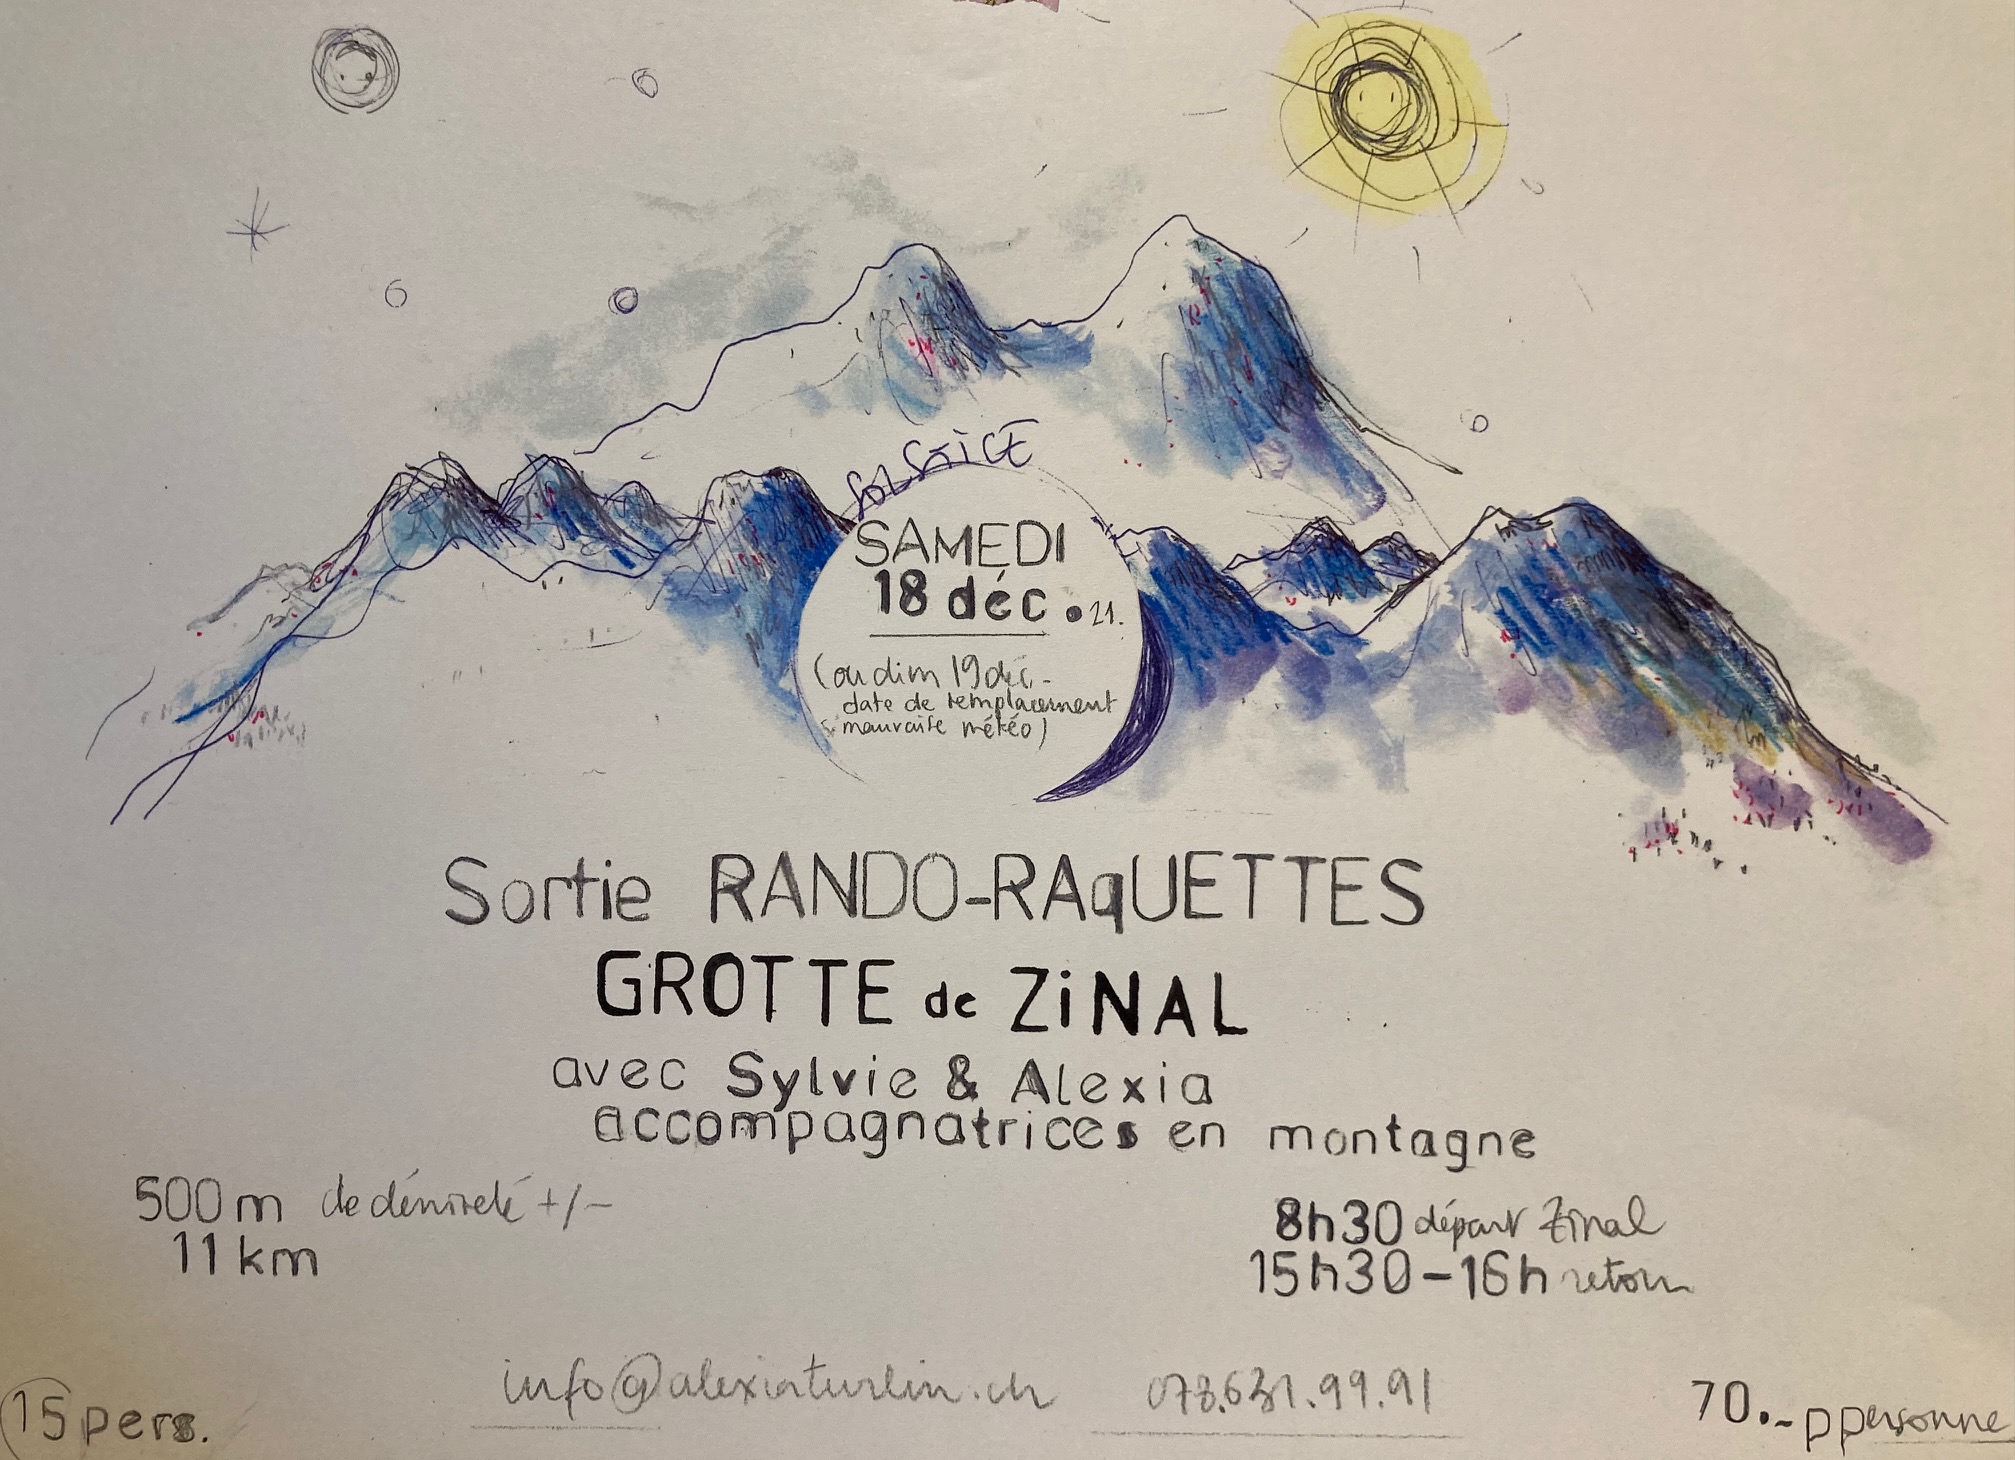 SOLSTICE
SAMEDI
18 déc. 21.
(ou dim 19 déc.
date de remplacement
si mauvaise météo)
Sortie RANDO-RAqUETTES
GROTTE de ZiNAL
avec Sylvie & Alexia
accompagnatrices en montagne
500m de dénivelé +/-
11 km
8h30 départ Zinal
15h30-16h retour
info@alexiaturlin.ch 078.631.99.91
15 pers.
70.- p personne